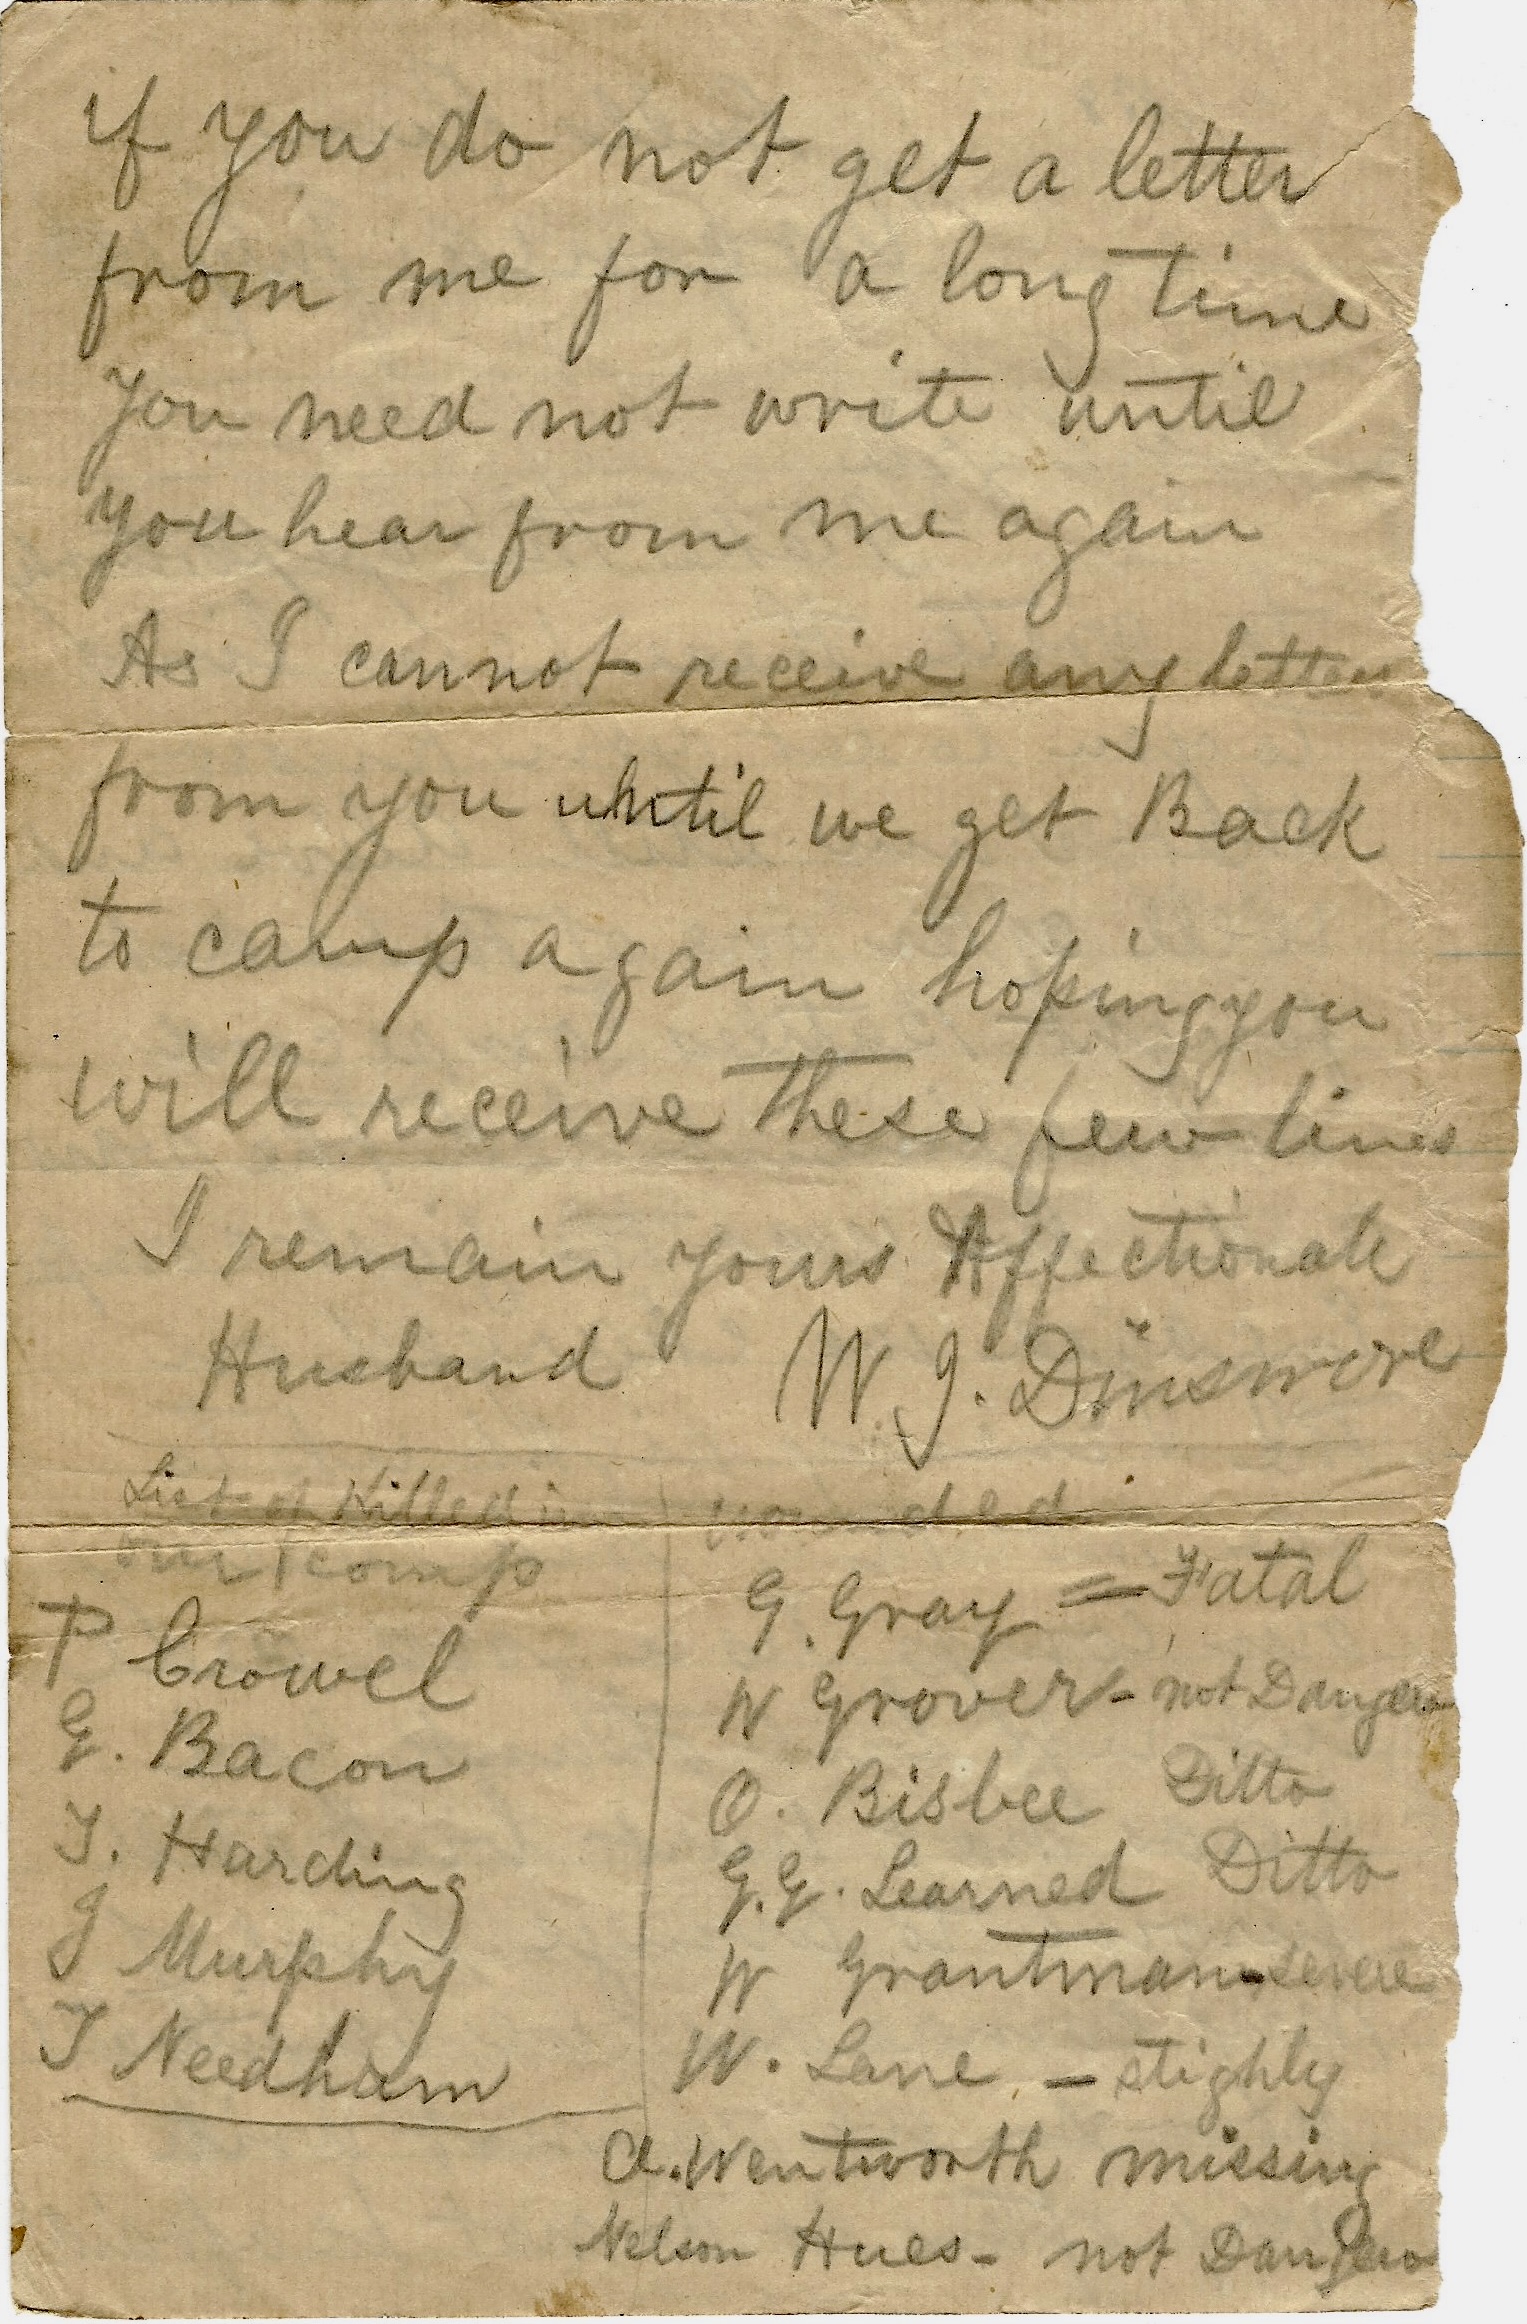 if you do not get a letter
from me for a long time
you need not write until
you hear from me again
As I cannot receive any letters
from you until we get Back
to camp again hoping you
will receive these few lines
I remain yours Affectionate
Husband W. J. Dinsmore
List of Killed in
our comp
P Crowel
G. Bacon
T. Harding
J Murphy
T Needham
wounded
G. Gray = Fatal
W Grover - not Dangero
O. Bisbee Ditto
G. G. Learned Ditto
W Grantman - severe
W. Lane - stighly
A. Wentworth missing
Nelson Hues - not Dangero